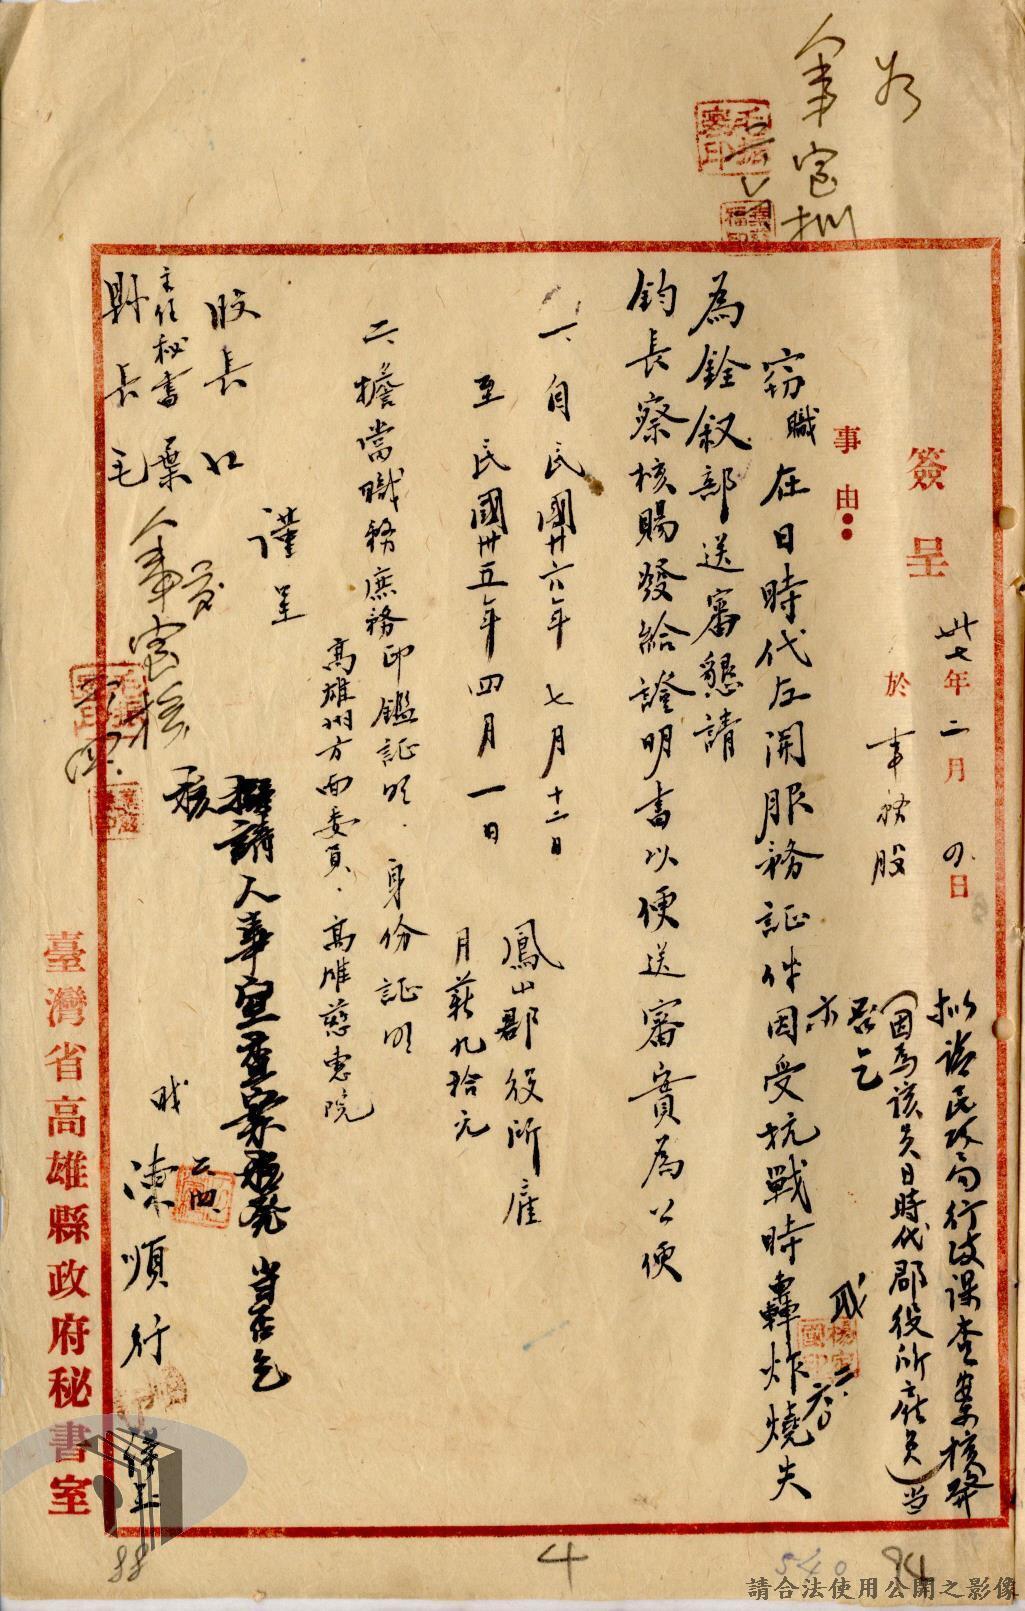 人事室批
簽呈
卅七年二月四日
於事務股
擬請民政局行政課查案核發
(因為該員日時代郡役所雇員)當
否乞
示
事由：
竊職在日時代左開服務証件因受抗戰時轟炸燒失
為銓叙部送審懇請
鈞長察核賜發給證明書以便送審實為公便
一、自民國廿六年七月十二日
鳳山郡役所雇
至民國卅五年四月一日
月薪九拾元
二、擔當職務庶務印鑑証明．身份証明
高雄州方面委員．高雄慈惠院
謹呈
股長
主任秘書葉
縣長毛
擬請人事室查案核發當否乞
核
人事室核
職陳順行
謹呈
臺灣省高雄縣政府秘書室
88
4
540
94
請合法使用公開之影像